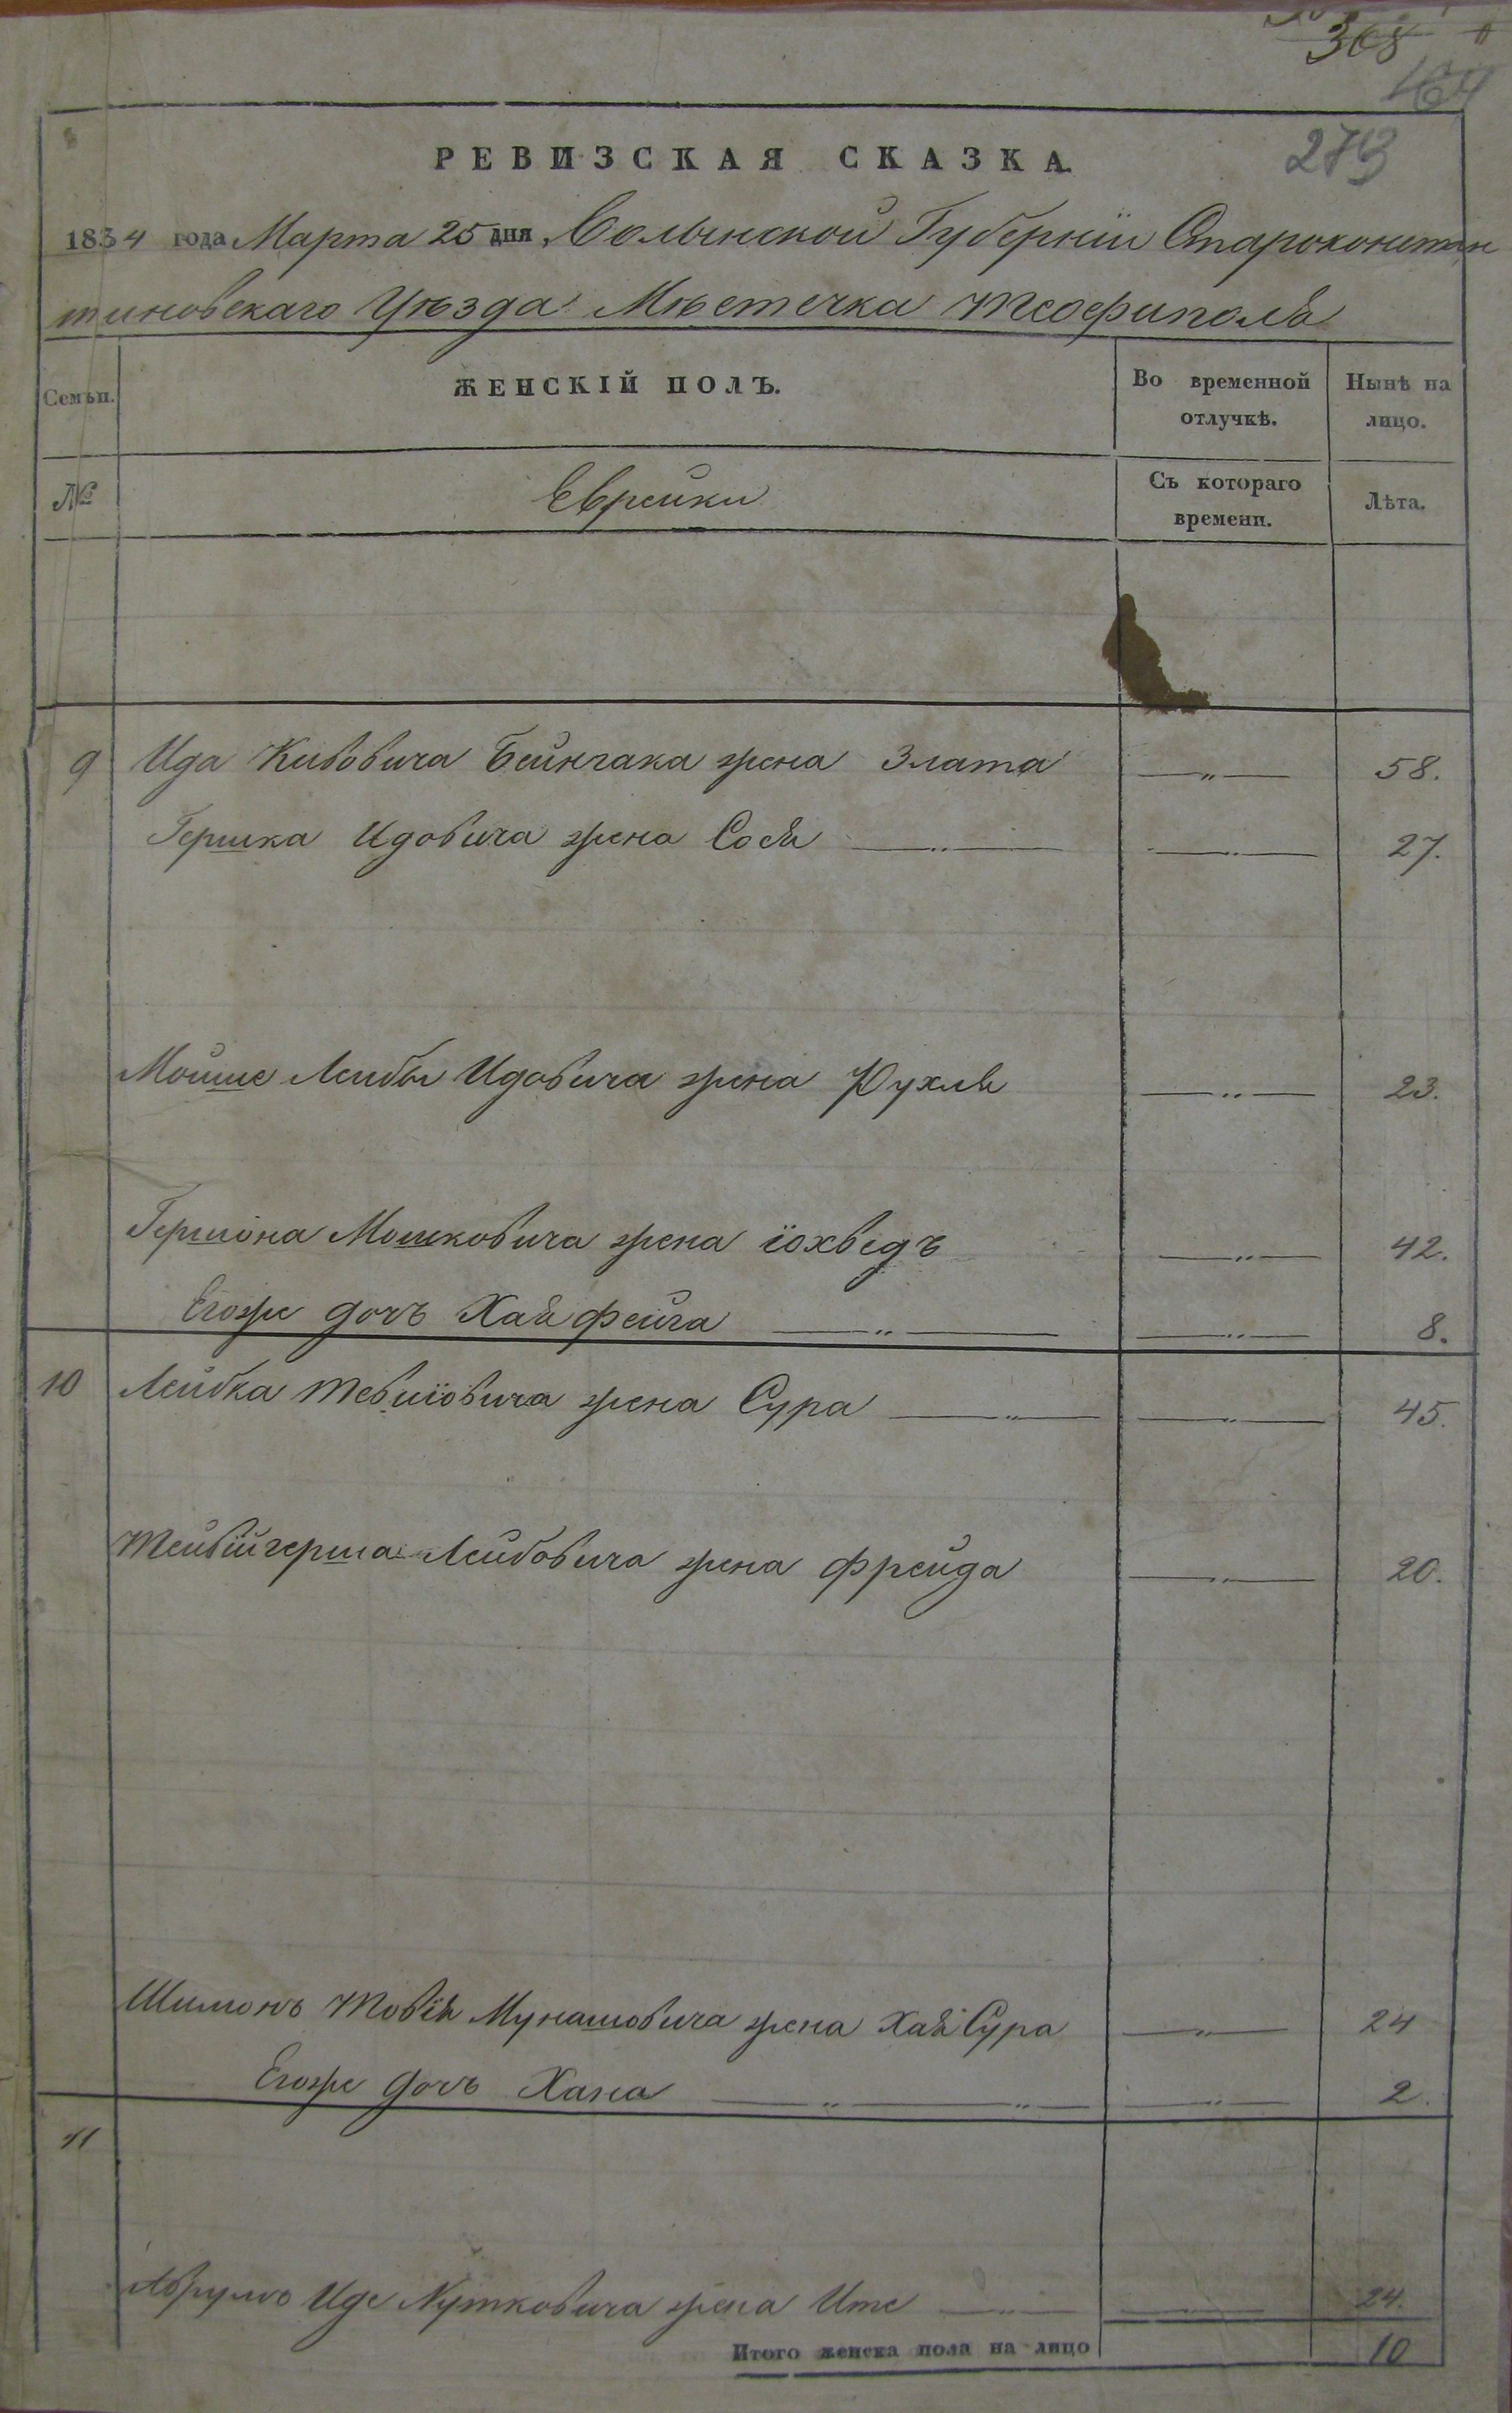 368
164
273
РЕВИЗСКАЯ СКАЗКА.
1834 года Марта 25 дня, Волынской Губерніи Староконстан
тиновскаго Уѣзда Мѣстечка Теофиполя
Семьи.
ЖЕНСКІЙ ПОЛЪ.
Во временной отлучкѣ.
Нынѣ на лицо.
№
Еврейки
Съ котораго времени.
Лѣта.
9 Ида Кивовича Бейнчака жена Злата —„— 58.
Гершка Идовича жена Сося —„— —„— 27.
Мойше Лейбы Идовича жена Рухля —„— 23.
Гершона Мошковича жена іохведъ —„— 42.
Егоже дочь Хая фейга —„— —„— 8.
10 Лейбка Тевиіовича жена Сура —„— —„— 45.
Тейвійгерша Лейбовича жена фрейда —„— 20.
Шимонъ Товія Мунашовича жена Хая Сура —„— 24
Егоже дочь Хана —„—„— —„— 2.
11
Абрумъ Иде Нутковича жена Ите —„— —„— 24.
Итого женска пола на лицо 10